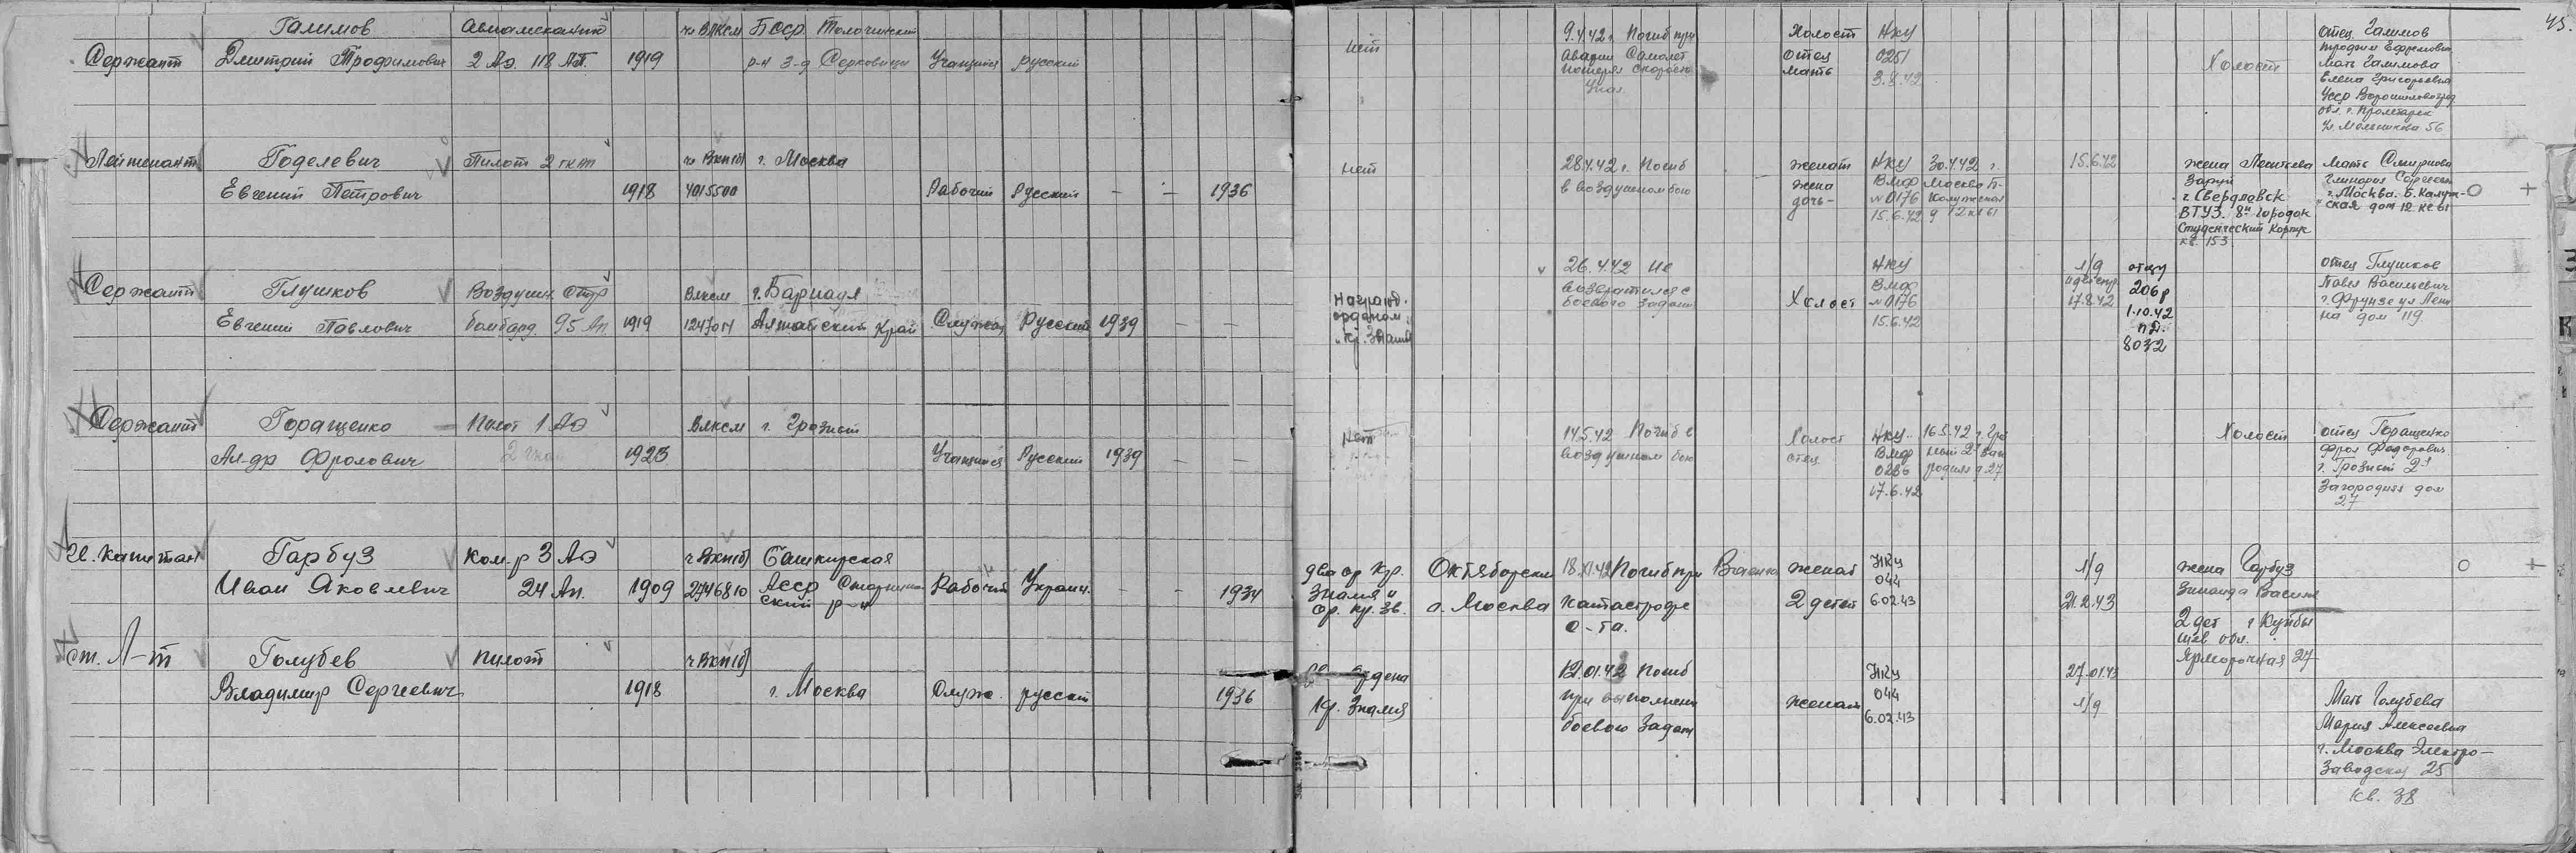 45.
Галимов Авиамеханик чл ВЛКСМ БССР Толочинский
Сержант Дмитрий Трофимович 2 АЭ 118 АП. 1919 р-н з-д Учащийся русский
нет
9.4.42 г. Погиб при
аварии Самолет
потерял скорость
Холост
отец
мать
НКУ
0251
3.8.42
Холост
отец Галимов
Трофим Ефремович
Мать Галимова
Елена Григорьевна
УССР Ворошиловград
обл. г. Пролетарск
ул. Мельникова 56
Лейтенант Годелевич Пилот 2 гкап чл ВКП(б) г. Москва
Евгений Петрович 1918 4015500 Рабочий Русский - - 1936
нет
28.4.42 г. Погиб
в воздушном бою
женат
жена
дочь -
НКУ
ВМФ
№ 0176
15.6.42
30.4.42 г.
Москва Б-
Калужская
д 12 кв 61
15.6.42
жена
г. Свердловск
ВТУЗ. 8й городок
Студенческий Корпус
кв. 153
Мать Смирнова
г. Москва. Б. Калуж-
ская дом 12 кв 61
О +
Сержант Глушков Воздушн. стр ВЛКСМ г. Барнаул
Евгений Павлович бомбард. 95 Ап. 1919 Алтайский Край Служащ Русский 1939 - -
Наград.
орденом
"Кр. Звезда"
26.4.42 Не
возвратился с
боевого задан
Холост
НКУ
ВМФ
№ 0176
15.6.42
л/д
17.8.42
отцу
206 р
1.10.42
п.д.
8032
отец Глушков
Павел Васильевич
г. Фрунзе ул Лени
на дом 119
Сержант Горащенко Пилот 1 АЭ ВЛКСМ г. Грозный
Ал-др Фролович 2 гкап 1923 Учащийся Русский 1939 - -
Нет
14.5.42 Погиб в
воздушном бою
Холост
отец
НКУ.
ВМФ
0286
17.6.42
16.5.42 г. Гроз
ный 2я Заго
родная д. 27
Холост
отец Горащенко
Фрол Федорович
г. Грозный 2я
Загородная дом
27
Капитан Гарбуз ком-р 3 АЭ чл ВКП(б) Башкирская
Иван Яковлевич 24 Ап. 1909 2746810 АССР Рабочий Украин. - - 1934
ский р-н
два ор Кр.
Знамя и
ор. Кр. Зв.
Октябрьский
г. Москва
18.XI.42 Погиб при
катастрофе
с-та.
Ваенга
женат
2 детей
НКУ
044
6.02.43
л/д
21.2.43
жена Гарбуз
Зинаида Васил
2 дет г Куйбы
шев обл.
Ярморочная 27
О +
Ст. Л-т Голубев пилот чл ВКП(б)
Владимир Сергеевич 1918 г. Москва Служ. русский 1936
ордена
Кр. Знамя
12.01.42 Погиб
при выполнени
боевого задан
женат
НКУ
044
6.02.43
27.01.43
л/д
Мать Голубева
Мария Алексеевна
г. Москва Электро-
Заводская 25
кв. 38